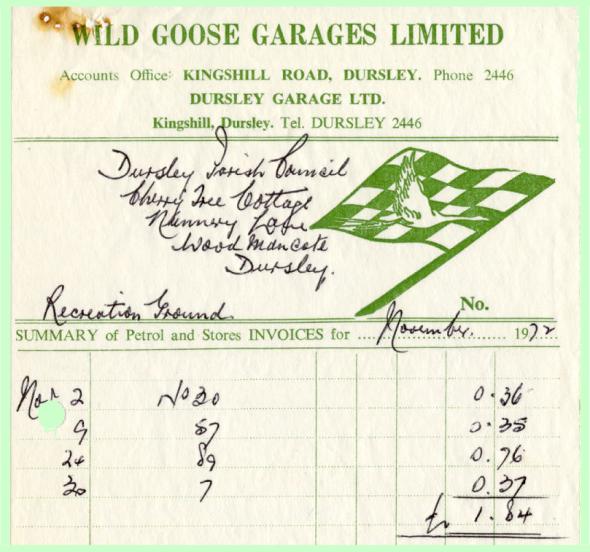 WILD GOOSE GARAGES LIMITED
Accounts Office: KINGSHILL ROAD, DURSLEY. Phone 2446
DURSLEY GARAGE LTD.
Kingshill, Dursley. Tel. DURSLEY 2446
Dursley Parish Council
Cherry Tree Cottage
Nunnery Lane
Woodmancote
Dursley.
Recreation Ground. No.
SUMMARY of Petrol and Stores INVOICES for November. 1972
Nov 2 No 20 0.36
9 57 0.35
24 89 0.76
30 7 0.37
£ 1.84